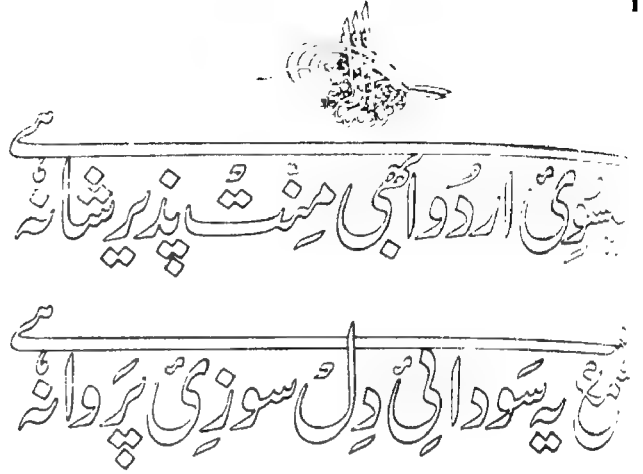 اردُو ابھی مِنّت پذیر شانہ ہے
یہ سَودائیِ دِل سوزیِ پَروانہ ہے